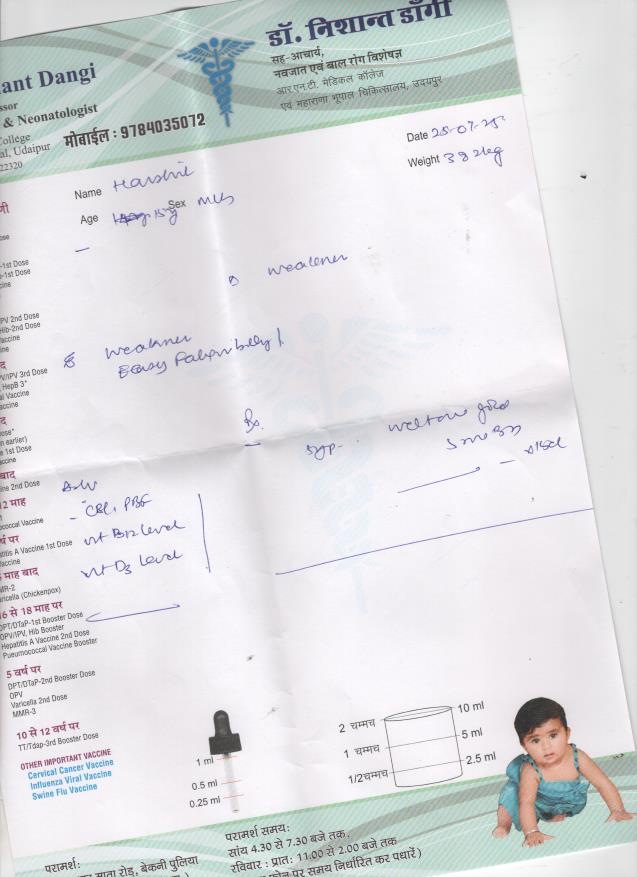 डॉ. निशान्त डाँगी
सह-आचार्य,
नवजात एवं बाल रोग विशेषज्ञ
आर.एन.टी. मेडिकल कॉलेज
एवं महाराणा भूपाल चिकित्सालय, उदयपुर
ant Dangi
ssor
& Neonatologist
College
al, Udaipur
22320
मोबाईल : 9784035072
Date 25-07-25
Weight 38.2kg
Name Harshil
Age 15y Sex
weakness
weakness
Easy
Rx
syp.
5 ml
Adv
- CBC, PBF
Vit B12 level
Vit D3 level
-1st Dose
-1st Dose
cine
PV 2nd Dose
Hib-2nd Dose
accine
ine
द
V/IPV 3rd Dose
HepB 3*
al Vaccine
accine
द
ose*
n earlier)
e 1st Dose
ccine
बाद
ine 2nd Dose
2 माह
ococcal Vaccine
र्ष पर
atitis A Vaccine 1st Dose
accine
माह बाद
MR-2
aricella (Chickenpox)
16 से 18 माह पर
DPT/DTaP-1st Booster Dose
OPV/IPV, Hib Booster
Hepatitis A Vaccine 2nd Dose
Pueumococcal Vaccine Booster
5 वर्ष पर
DPT/DTaP-2nd Booster Dose
OPV
Varicella 2nd Dose
MMR-3
10 से 12 वर्ष पर
TT/Tdap-3rd Booster Dose
OTHER IMPORTANT VACCINE
Cervical Cancer Vaccine
Influenza Viral Vaccine
Swine Flu Vaccine
1 ml
0.5 ml
0.25 ml
2 चम्मच 10 ml
1 चम्मच 5 ml
1/2चम्मच 2.5 ml
परामर्श:
माता रोड़, बेकनी पुलिया
परामर्श समय:
सांय 4.30 से 7.30 बजे तक,
रविवार : प्रात: 11.00 से 2.00 बजे तक
फोन पर समय निर्धारित कर पधारें)